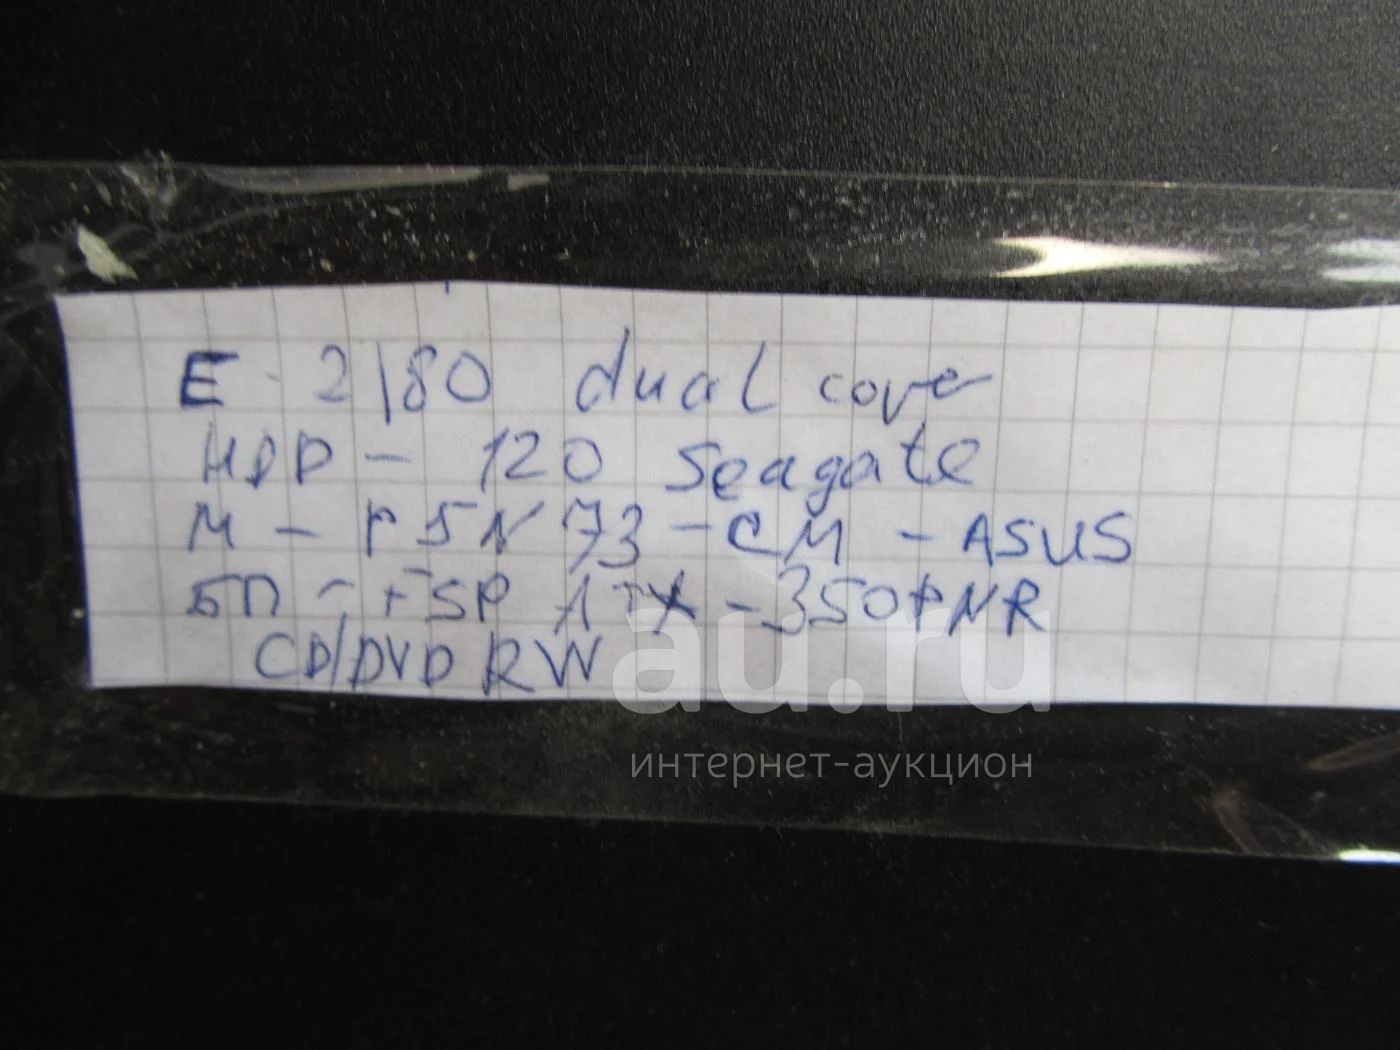 E-2180 dual core
HDD - 120 Seagate
M - P5N73-CM - ASUS
БП - FSP ATX - 350PNR
CD/DVD RW
au.ru
интернет-аукцион